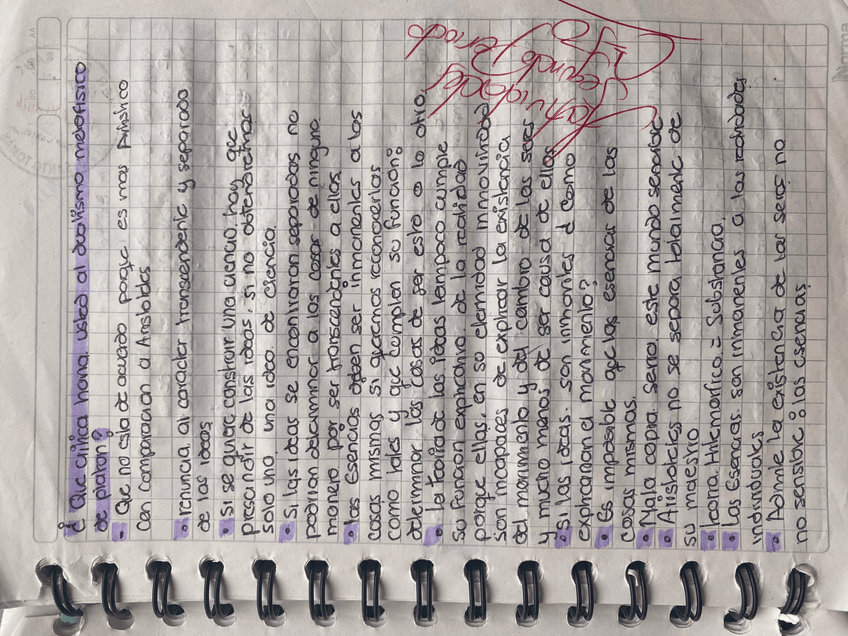 ¿ Que critica haria usted al dualismo metafisico
de platon?
• Que no esta de acuerdo porque es mas
con comparacion a Aristoteles
• renuncia al carácter transcendente y separado
de las ideas
• Si se quiere construir una ciencia, hay que
prescindir de las ideas, si no obtendriamos
solo una idea de ciencia.
• Si las ideas se encontraran separadas no
podrian determinar a las cosas de ninguna
manera por ser transcendentes a ellas
• las Esencias deben ser inmanentes a las
cosas mismas si queremos reconocerlas
como tales y que cumplan su funcion:
determinar las cosas de ser esto o lo otro
• la teoria de las ideas tampoco cumple
su funcion explicativa de la realidad
porque ellas, en su eternidad inmovilidad
son incapaces de explicar la existencia
del movimiento y del cambio de los seres
y mucho menos de ser causa de ellos
• Si las ideas. son inmoviles d como
explicarian el movimiento?
• Es imposible que las esencias de las
cosas mismas.
• Mala copia seria este mundo sensible
• Aristoteles no se separa totalmente de
su maestro
• teoria Hilemorfica = Substancia.
• las Esencias son inmanentes a las realidades
individuales
• Admite la existencia de los seres no
no sensible : las esencias
Actividades
Segundo Periodo
Norma